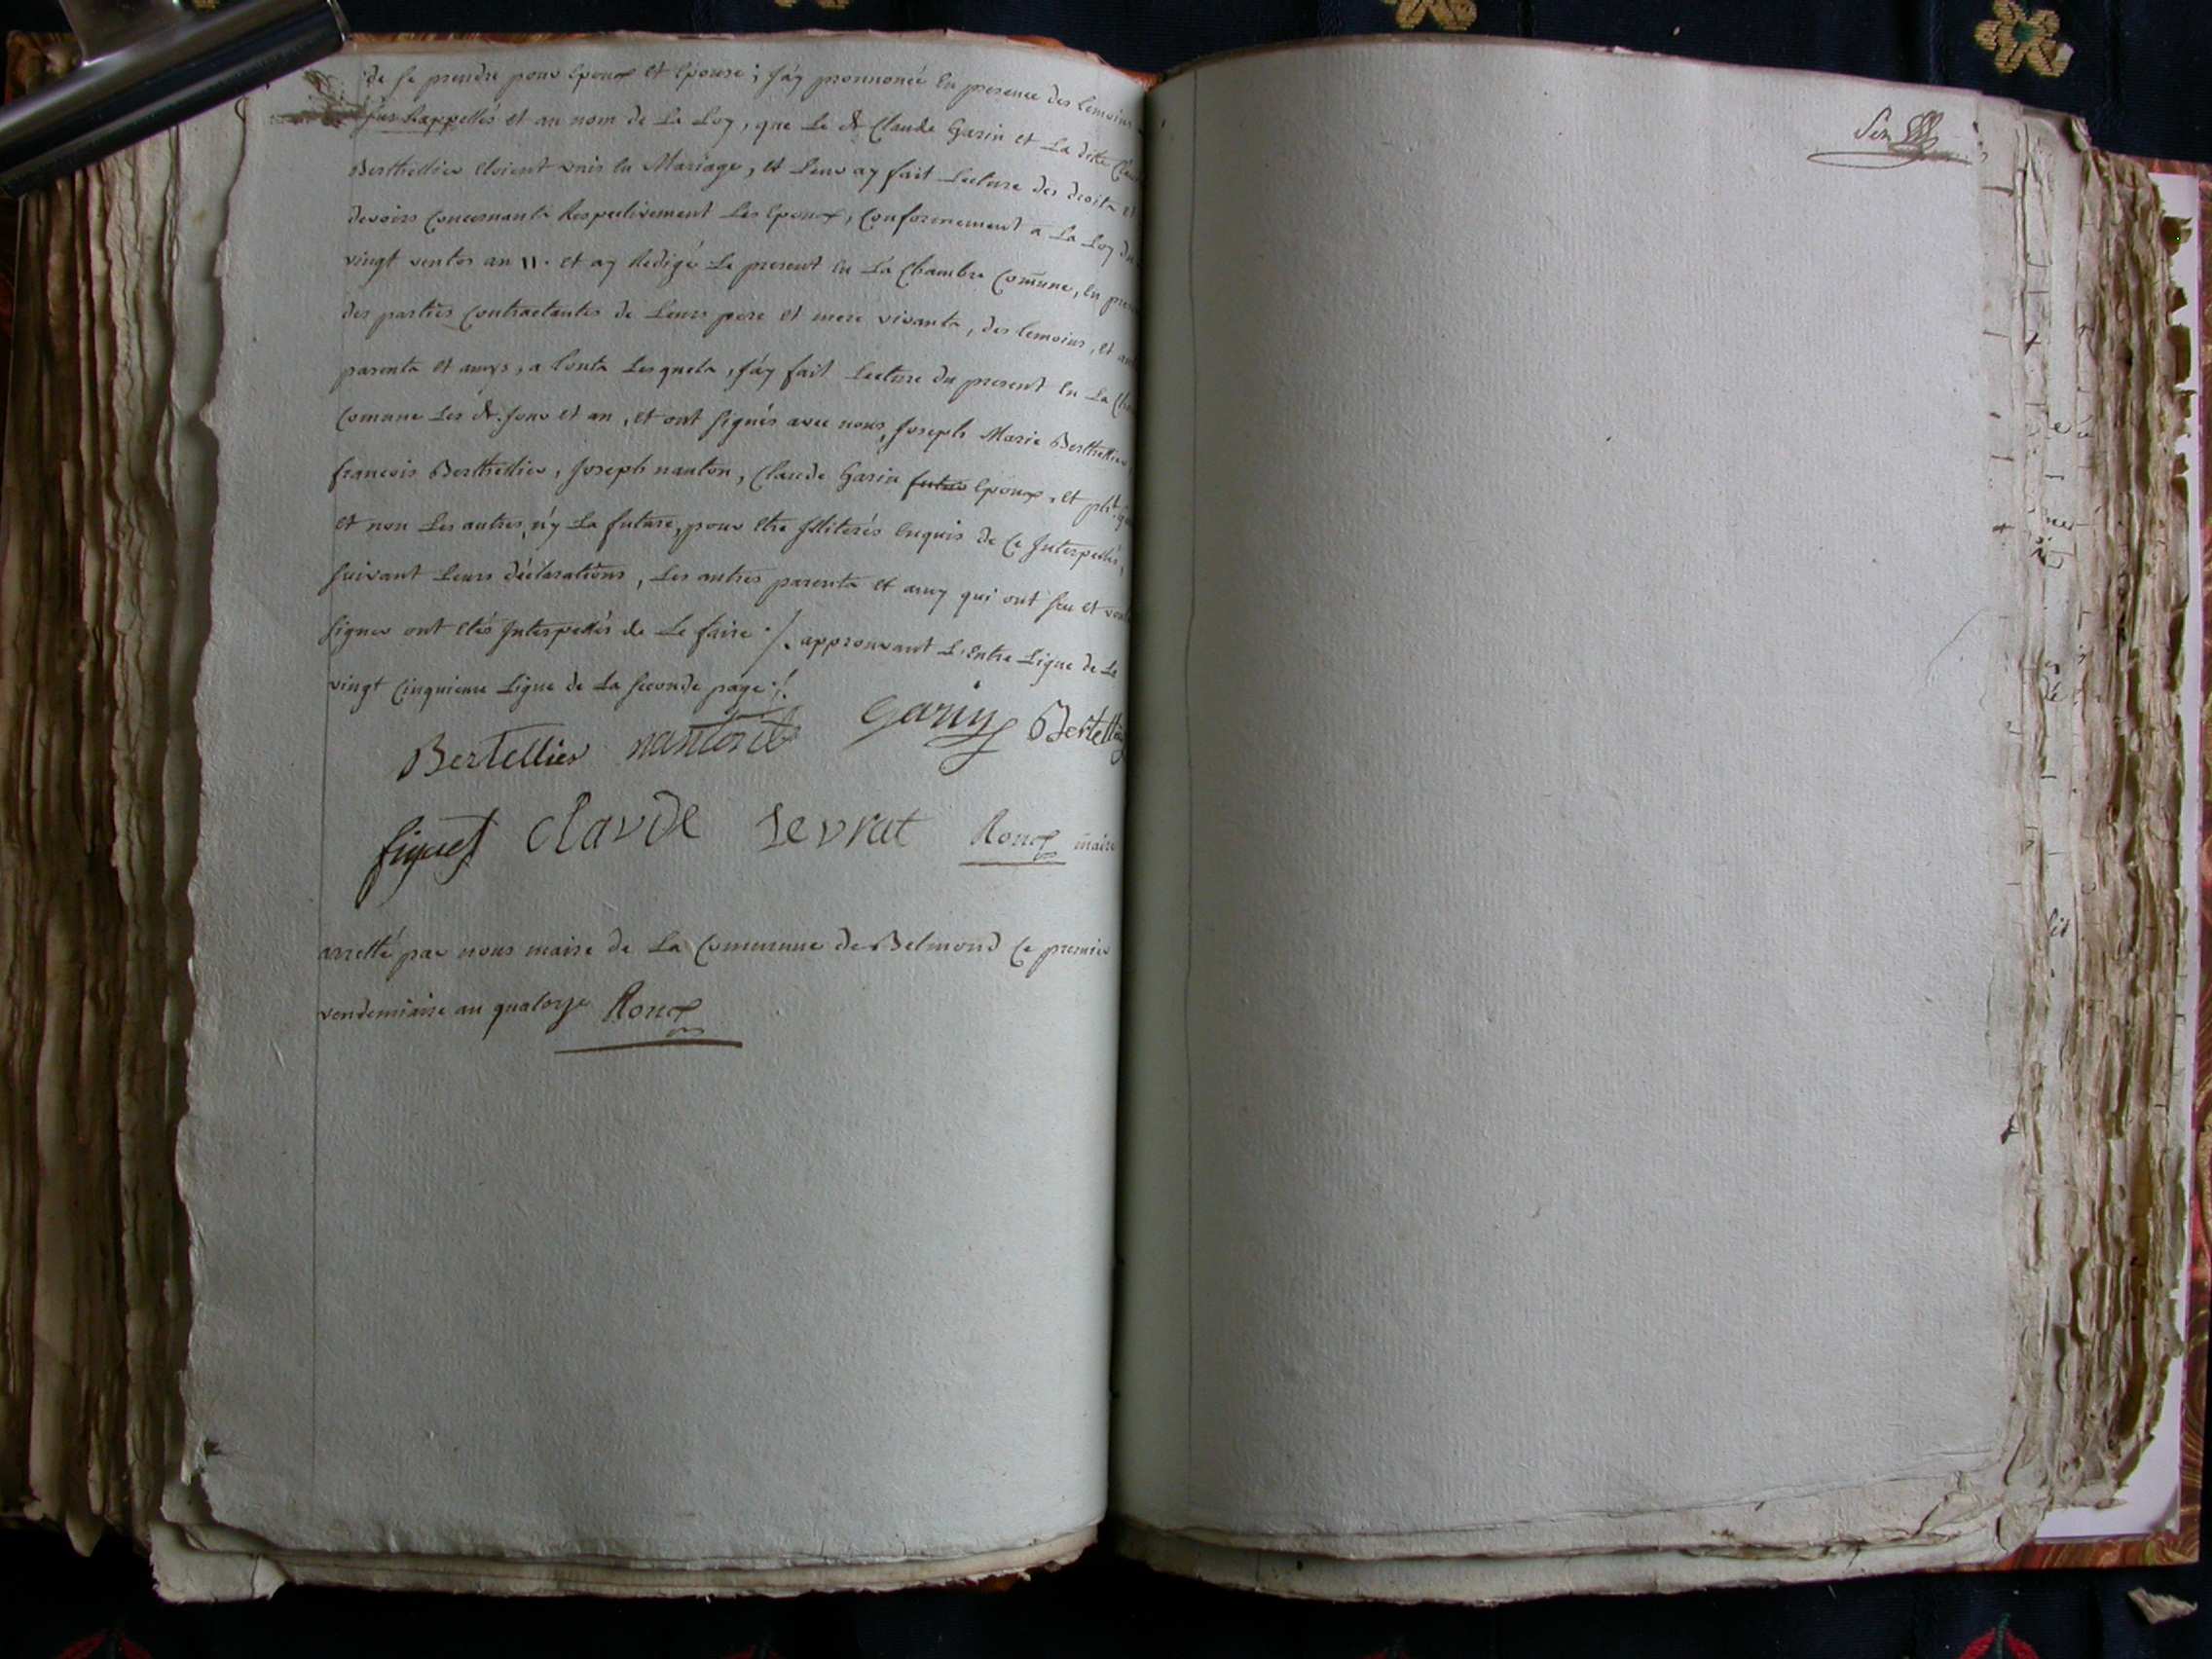 de se prendre pour Epoux et Epouse ; J'ay pronnoncé En presence des temoins
sus Rappellés et au nom de La Loy, que Le dt Claude Garin et La ditte
Berthellier Etoient unis En Mariage, et Leur ay fait Lecture des droits et
devoirs Concernants Respectivement Les Epoux, Conformement a La Loy du
vingt ventos an 11. et ay Redigé Le present En La Chambre Comune, En
des parties Contractantes de Leurs pere et mere vivants, des temoins, et
parents et amys, a touts Lesquels, J'ay fait Lecture du present En La
Comune Les dt. Jour et an, et ont signés avec nous, Joseph Marie Berthellier
francois Berthellier, Joseph nanton, Claude Garin futur Epoux, et pht.
et non Les autres, n'y La future, pour Etre Illiterés Enquis de Ce Interpellés,
suivant Leurs déclarations, Les autres parents et amy qui ont sçu et
signer ont Etés Interpellés de Le faire ./. approuvant L'Entre Ligne de La
vingt Cinquieme Ligne de La seconde page ./.
Bertellier nanton garin Bertellier
figuet Claude Sevrat Roux maire
arretté par nous maire de La Commune de Belmond Ce premier
vendemiaire an quatorze Roux